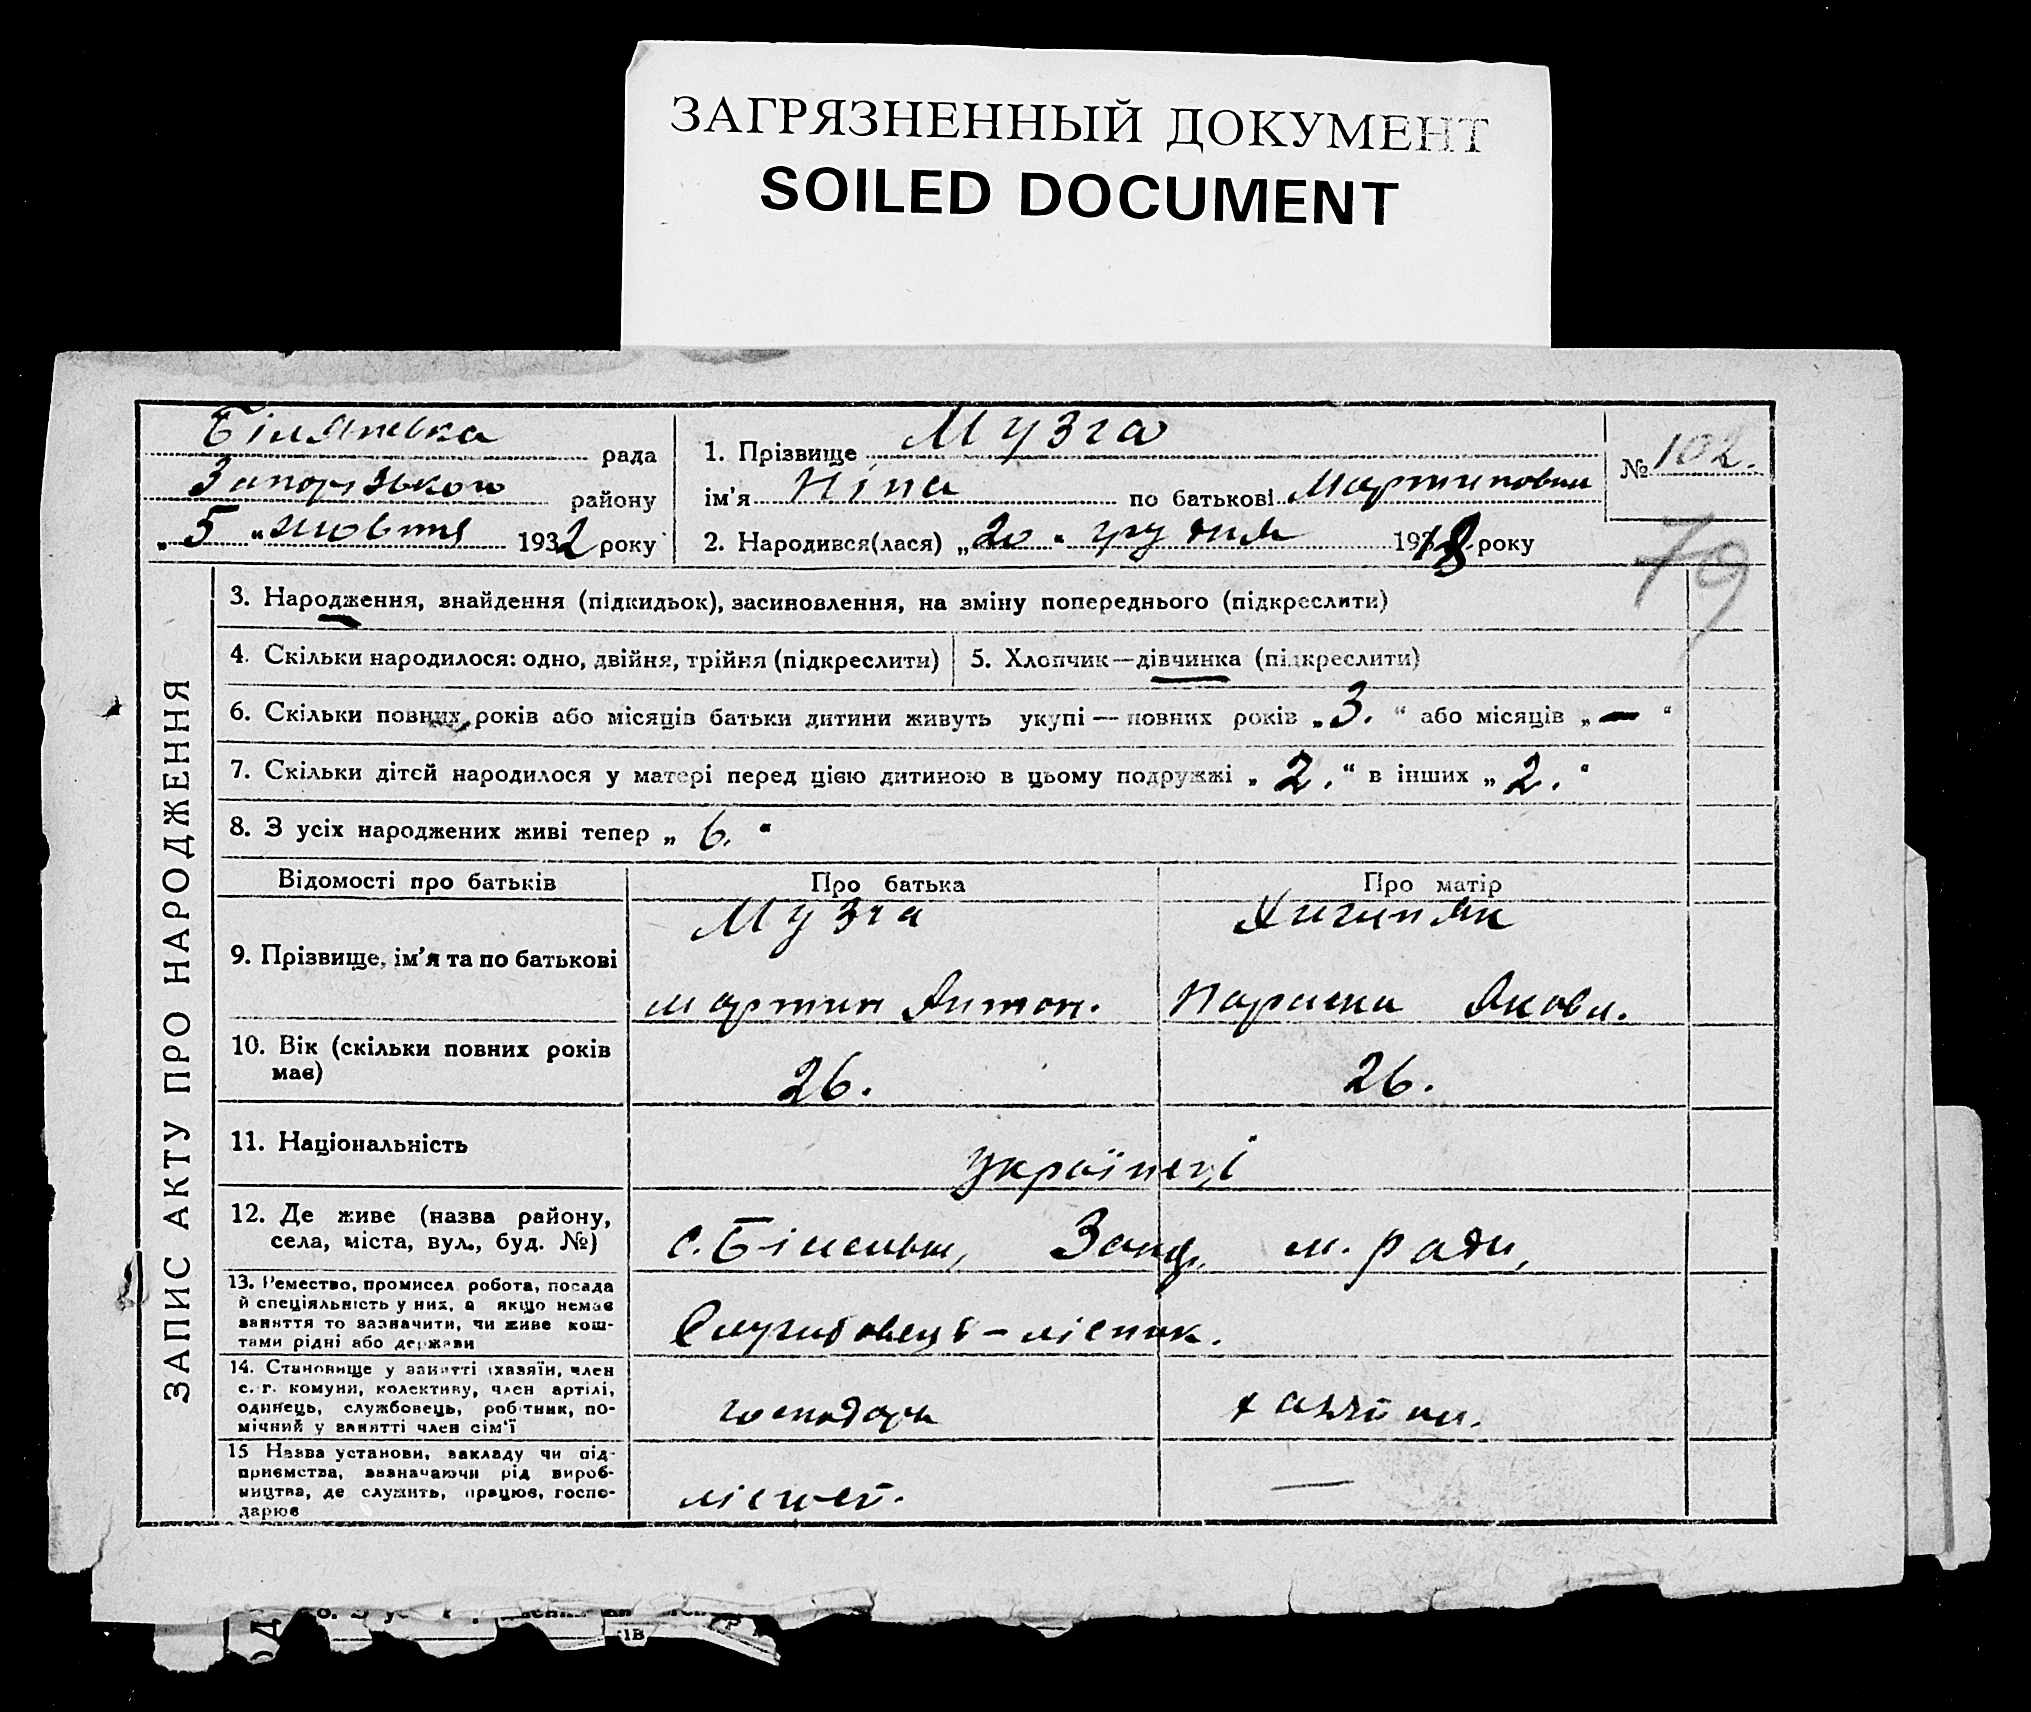 ЗАГРЯЗНЕННЫЙ ДОКУМЕНТ
SOILED DOCUMENT
Біляневка рада
Запорізького району
„5“ жовтня 1932 року
1. Прізвище Музга
ім'я Ніна по батькові Мартиновна
2. Народився(лася) „20“ грудня 1918 року
№ 102.
79
ЗАПИС АКТУ ПРО НАРОДЖЕННЯ
3. Народження, знайдення (підкидьок), засиновлення, на зміну попереднього (підкреслити)
4. Скільки народилося: одно, двійня, трійня (підкреслити)
5. Хлопчик—дівчинка (підкреслити)
6. Скільки повних років або місяців батьки дитини живуть укупі — повних років „3.“ або місяців „—“
7. Скільки дітей народилося у матері перед цією дитиною в цьому подружжі „2.“ в інших „2.“
8. З усіх народжених живі тепер „6.“
Відомості про батьків Про батька Про матір
9. Прізвище, ім'я та по батькові
Музга
Мартин Антон.
Параска Яковл.
10. Вік (скільки повних років
має)
26. 26.
11. Національність
українці
12. Де живе (назва району,
села, міста, вул., буд. №)
с. Запор. м. ради,
13. Ремество, промисел робота, посада
й спеціяльність у них, а якщо немає
заняття то зазначити, чи живе кош-
тами рідні або держави
Службовець – лісник.
14. Становище у занятті (хазяїн, член
с. г. комуни, колективу, член артілі,
одинець, службовець, робітник, по-
мічний у занятті член сім'ї
господарь хазяйка.
15 Назва установи, закладу чи під-
приємства, зазначаючи рід вироб-
ництва, де служить, працює, госпо-
дарює
—